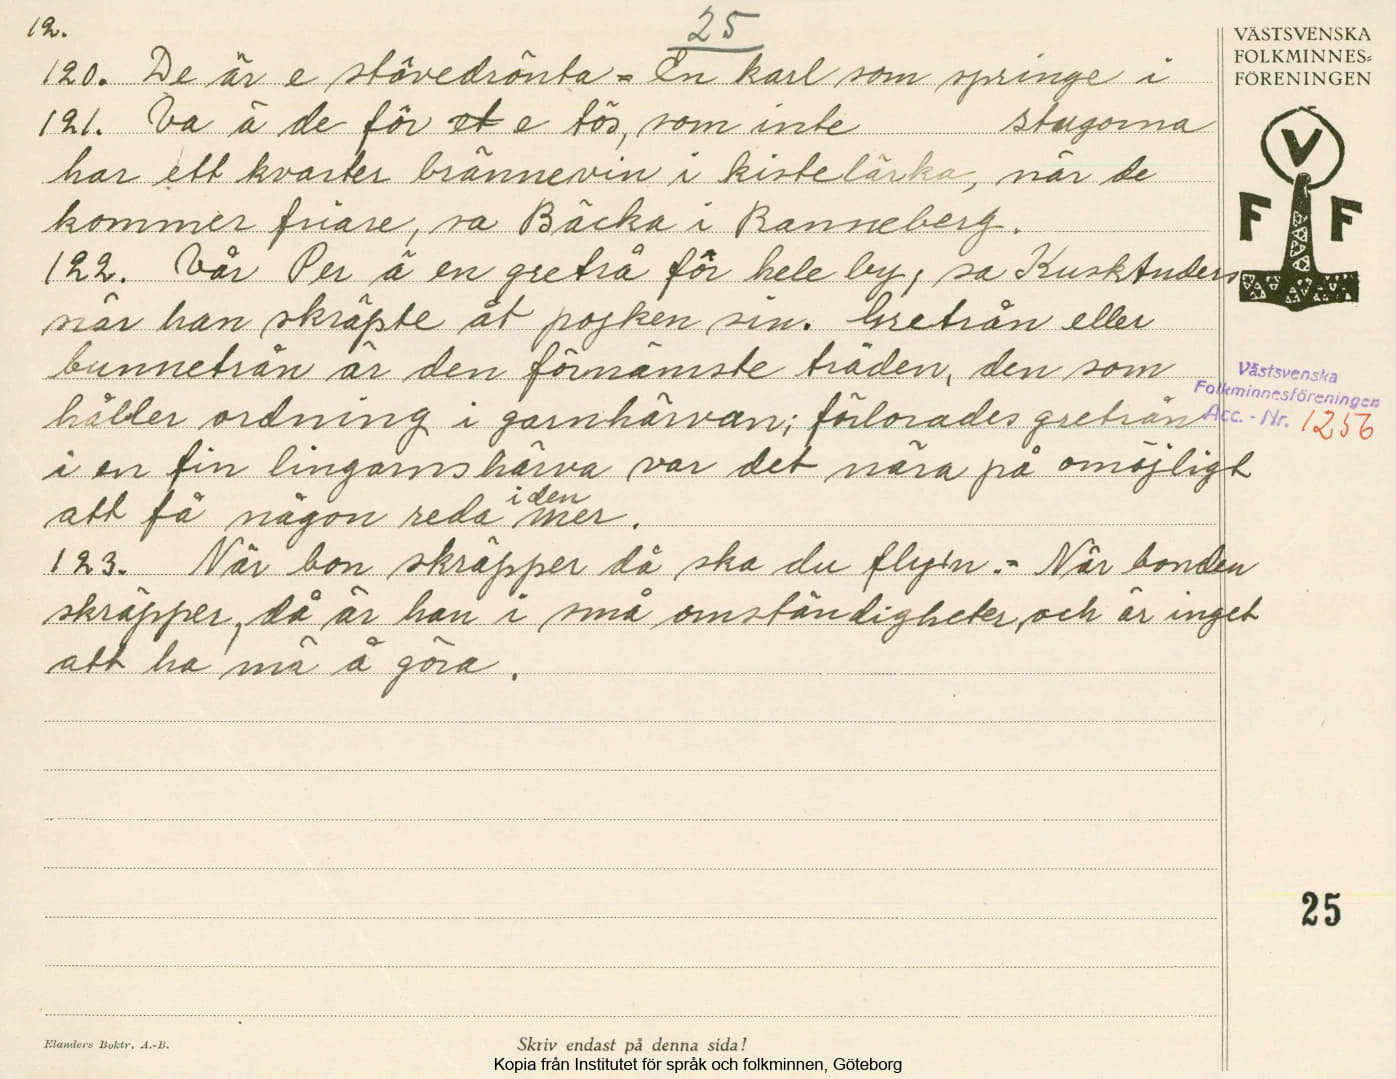 12.
25
120. De är e stôvedrönta = En karl som springe i
stugorna
121. Va ä de för et e tös, som inte
har ett kvarter brännevin i kistelärka, när de
kommer friare, sa Bäcka i Ranneberg.
122. Vår Per ä en greträ för hele by, sa Kusk Anders
när han skräpte åt pojken sin. Greträn eller
bunneträn är den förnämste träden, den som
håller ordning i garnhärvan; förlorades greträn
i en fin lingarnshärva var det nära på omöjligt
att få någon reda i den mer.
123. När bon skräpper då ska du fly'n. = När bonden
skräpper, då är han i små omständigheter, och är inget
att ha mä å göra.
VÄSTSVENSKA
FOLKMINNES=
FÖRENINGEN
V
F F
Västsvenska
Folkminnesföreningen
Acc. - Nr. 1256
25
Elanders Boktr. A.-B.
Skriv endast på denna sida!
Kopia från Institutet för språk och folkminnen, Göteborg